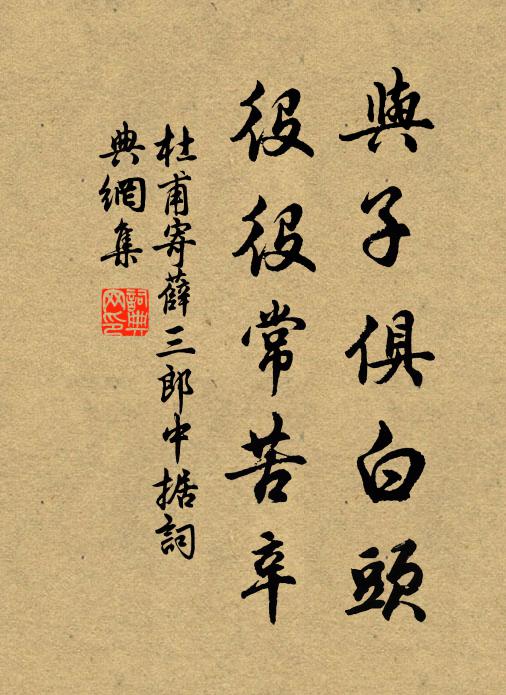 與子俱白頭
役役常苦辛
杜甫寄薛三郎中据詞
典網集
詞典网印